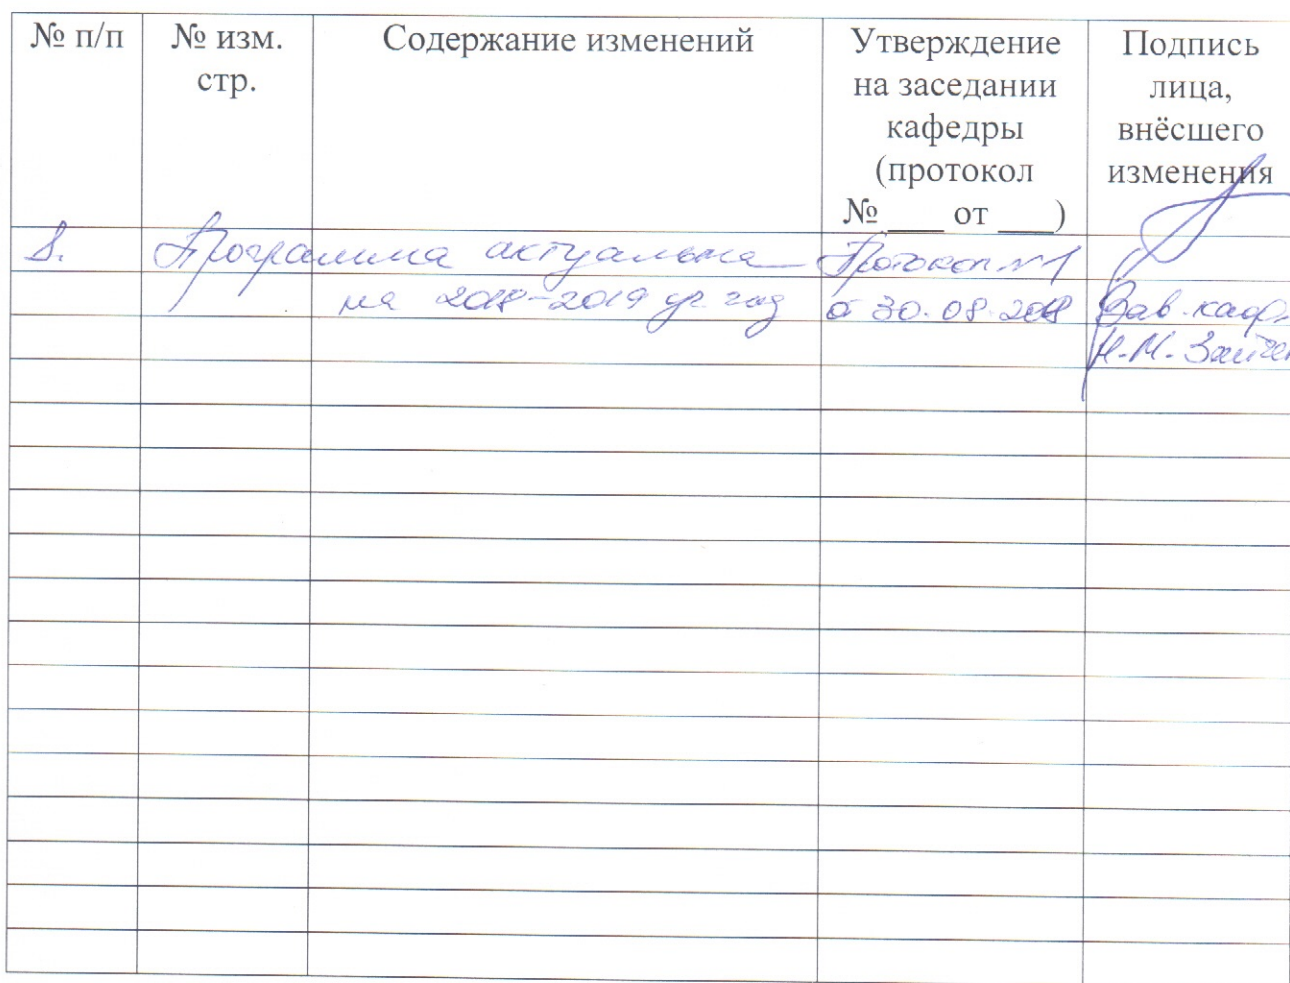 № п/п
№ изм.
стр.
Содержание изменений
Утверждение
на заседании
кафедры
(протокол
№ ___ от ___)
Подпись
лица,
внёсшего
изменения
Программа актуальна
на 2018-2019 уч. год
Протокол №1
от 30.08.2018
Зав. каф.
Н.М.